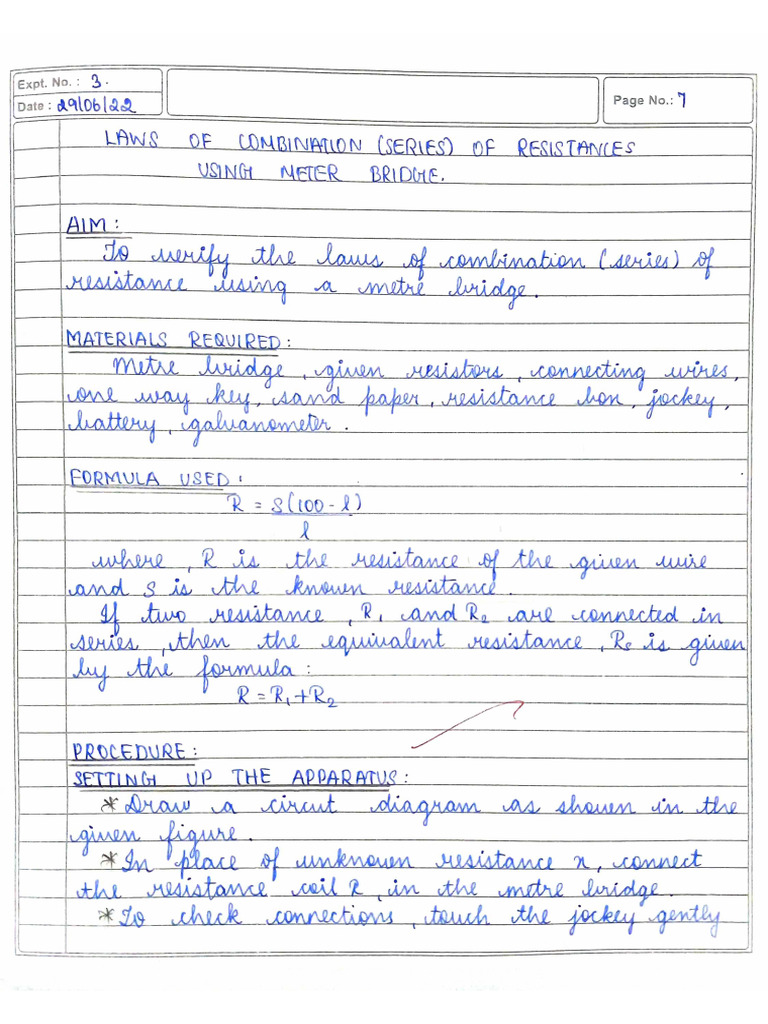 Expt. No. : 3.
Date : 29/06/22
Page No.: 7
LAWS OF COMBINATION (SERIES) OF RESISTANCES
USING METER BRIDGE.
AIM :
To verify the laws of combination (series) of
resistance using a metre bridge.
MATERIALS REQUIRED :
Metre bridge, given resistors, connecting wires,
one way key, sand paper, resistance box, jockey,
battery, galvanometer.
FORMULA USED :
R = S(100 - l)
l
where, R is the resistance of the given wire
and S is the known resistance.
If two resistance, R₁ and R₂ are connected in
series, then the equivalent resistance, Rs is given
by the formula :
R = R₁ + R₂
PROCEDURE :
SETTING UP THE APPARATUS :
* Draw a circut diagram as shown in the
given figure.
* In place of unknown resistance x, connect
the resistance coil R, in the metre bridge.
* To check connections, touch the jockey gently